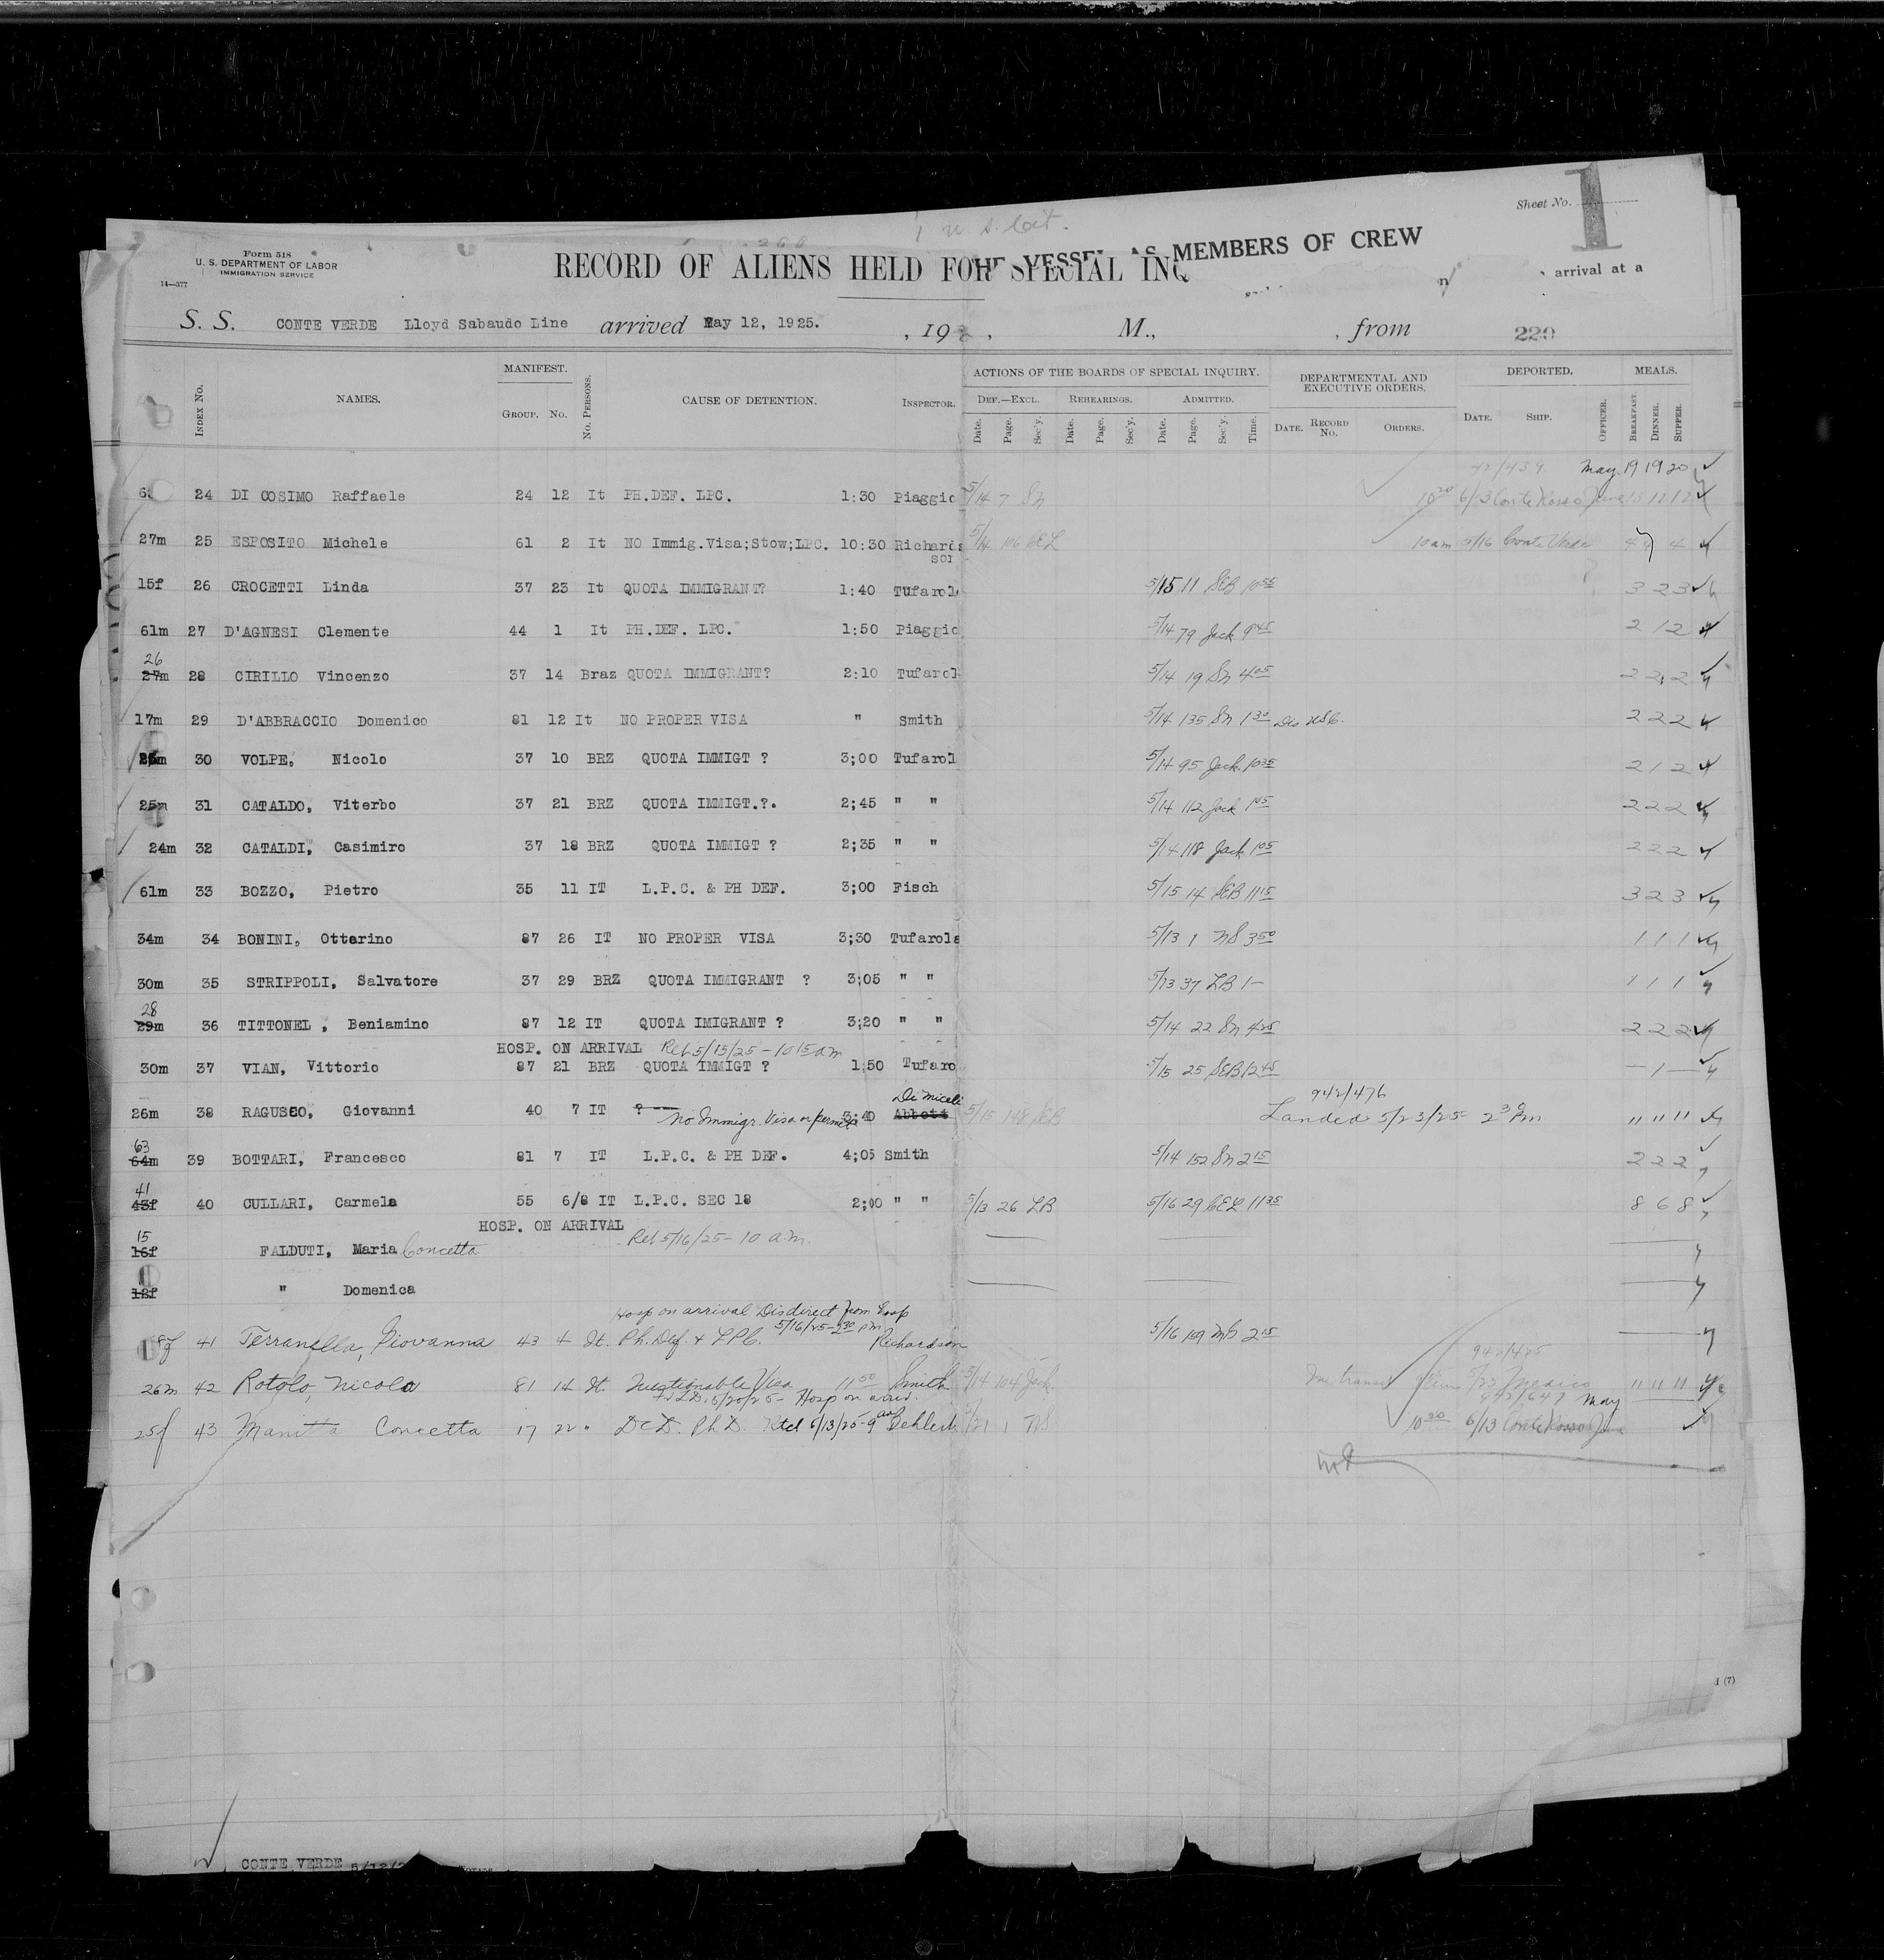 1 U. S. Cit.
Sheet No. 1
Form 518
U. S. DEPARTMENT OF LABOR
IMMIGRATION SERVICE
14—377
RECORD OF ALIENS HELD FOR SPECIAL INQ
HE VESSEL AS MEMBERS OF CREW
arrival at a
S. S. CONTE VERDE Lloyd Sabaudo Line arrived May 12, 1925. , 19 , M., , from 220
INDEX No. NAMES. MANIFEST. GROUP. No. No. PERSONS. CAUSE OF DETENTION. INSPECTOR. ACTIONS OF THE BOARDS OF SPECIAL INQUIRY. DEF.—EXCL. Date. Page. Sec'y. REHEARINGS. Date. Page. Sec'y. ADMITTED. Date. Page. Sec'y. Time. DEPARTMENTAL AND EXECUTIVE ORDERS. DATE. RECORD No. ORDERS. DEPORTED. DATE. SHIP. OFFICER. MEALS. BREAKFAST. DINNER. SUPPER.
May 19 19 20
24 DI COSIMO Raffaele 24 12 It PH.DEF. LPC. 1:30 Piaggio 5/14 7 Sn 10 20 6/13 Conte Rosso June 13 12 12
27m 25 ESPOSITO Michele 61 2 It NO Immig.Visa;Stow;LPC. 10:30 Richards 5/14 106 CEL 10 am 5/16 Conte Verde 4 4 4
son
15f 26 CROCETTI Linda 37 23 It QUOTA IMMIGRANT? 1:40 Tufarol 5/15 11 SEB 10 55 3 2 3
61m 27 D'AGNESI Clemente 44 1 It PH.DEF. LPC. 1:50 Piaggio 5/14 79 Jack 9 45 2 1 2
26
27m 28 CIRILLO Vincenzo 37 14 Braz QUOTA IMMIGRANT? 2:10 Tufarol 5/14 19 Sn 4 05 2 2 2
17m 29 D'ABBRACCIO Domenico 81 12 It NO PROPER VISA " Smith 5/14 135 Sn 1 30 Dis USC. 2 2 2
30 VOLPE, Nicolo 37 10 BRZ QUOTA IMMIGT ? 3;00 Tufarol 5/14 95 Jack. 10 35 2 1 2
25m 31 CATALDO, Viterbo 37 21 BRZ QUOTA IMMIGT.?. 2;45 " " 5/14 112 Jack 1 05 2 2 2
24m 32 CATALDI, Casimiro 37 18 BRZ QUOTA IMMIGT ? 2;35 " " 5/14 118 Jack 1 05 2 2 2
61m 33 BOZZO, Pietro 35 11 IT L.P.C. & PH DEF. 3;00 Fisch 5/15 14 SEB 11 15 3 2 3
34m 34 BONINI, Ottarino 87 26 IT NO PROPER VISA 3;30 Tufarola 5/13 1 NS 3 50 1 1 1
30m 35 STRIPPOLI, Salvatore 37 29 BRZ QUOTA IMMIGRANT ? 3;05 " " 5/13 37 LB 1— 1 1 1
28
29m 36 TITTONEL , Beniamino 87 12 IT QUOTA IMIGRANT ? 3;20 " " 5/14 22 Sn 4 25 2 2 2
HOSP. ON ARRIVAL Rel 5/15/25 - 10 15 a m
30m 37 VIAN, Vittorio 87 21 BRZ QUOTA IMMIGT ? 1;50 Tufaro 5/15 25 SEB 12 45 — 1 —
Di Miceli 942/476
26m 38 RAGUSEO, Giovanni 40 7 IT ? No Immigr. Visa or permit 3;40 Abbott 5/15 148 SEB Landed 5/23/25 2 30 Pm " " "
63
64m 39 BOTTARI, Francesco 81 7 IT L.P.C. & PH DEF. 4;05 Smith 5/14 152 Sn 2 15 2 2 2
41
43f 40 CULLARI, Carmela 55 6/8 IT L.P.C. SEC 18 2;00 " " 5/13 26 LB 5/16 29 CEL 11 35 8 6 8
HOSP. ON ARRIVAL Rel 5/16/25 - 10 a.m.
15
16f FALDUTI, Maria Concetta
12f " Domenica
Hosp on arrival Dis direct from Hosp
5/16/25 - 2 30 pm
8f 41 Terranella, Giovanna 43 4 It. Ph. Def. & LPC. Richardson 5/16 159 2 15
26m 42 Rotolo, Nicola 81 14 It. Questionable Visa 11 50 Smith 5/14 104 Jack. In transit 5/23 Mexico " " "
5/20/25 - Hosp on arriv. 942/647 May
25f 43 Manitta Concetta 17 22 " DCD. Ph D. Rtd 6/13/25 - 9 am Oehlert 5/21 1 NS 10 20 6/13 Conte Rosso June
1 (7)
CONTE VERDE 5/12/2